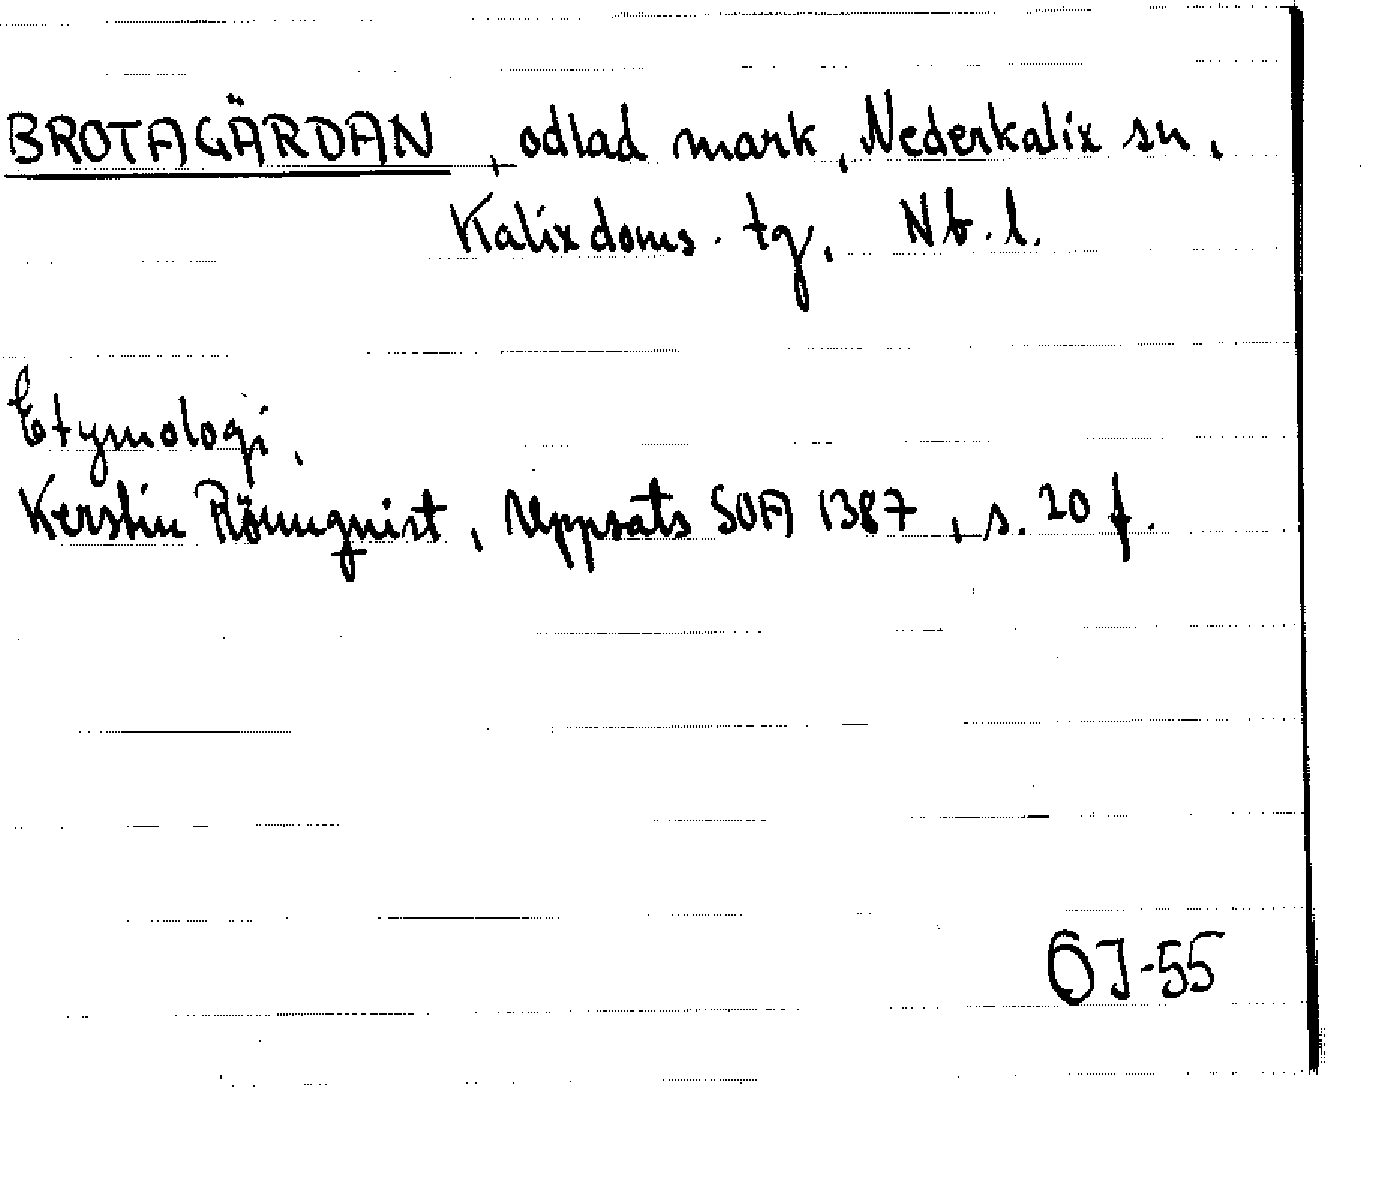 BROTAGÄRDAN, odlad mark, Nederkalix sn,
Kalix doms. tg, Nb. l.
Etymologi,
Kerstin Rönnqvist, Uppsats SOA 1387, s. 20 f.
ÖJ-55